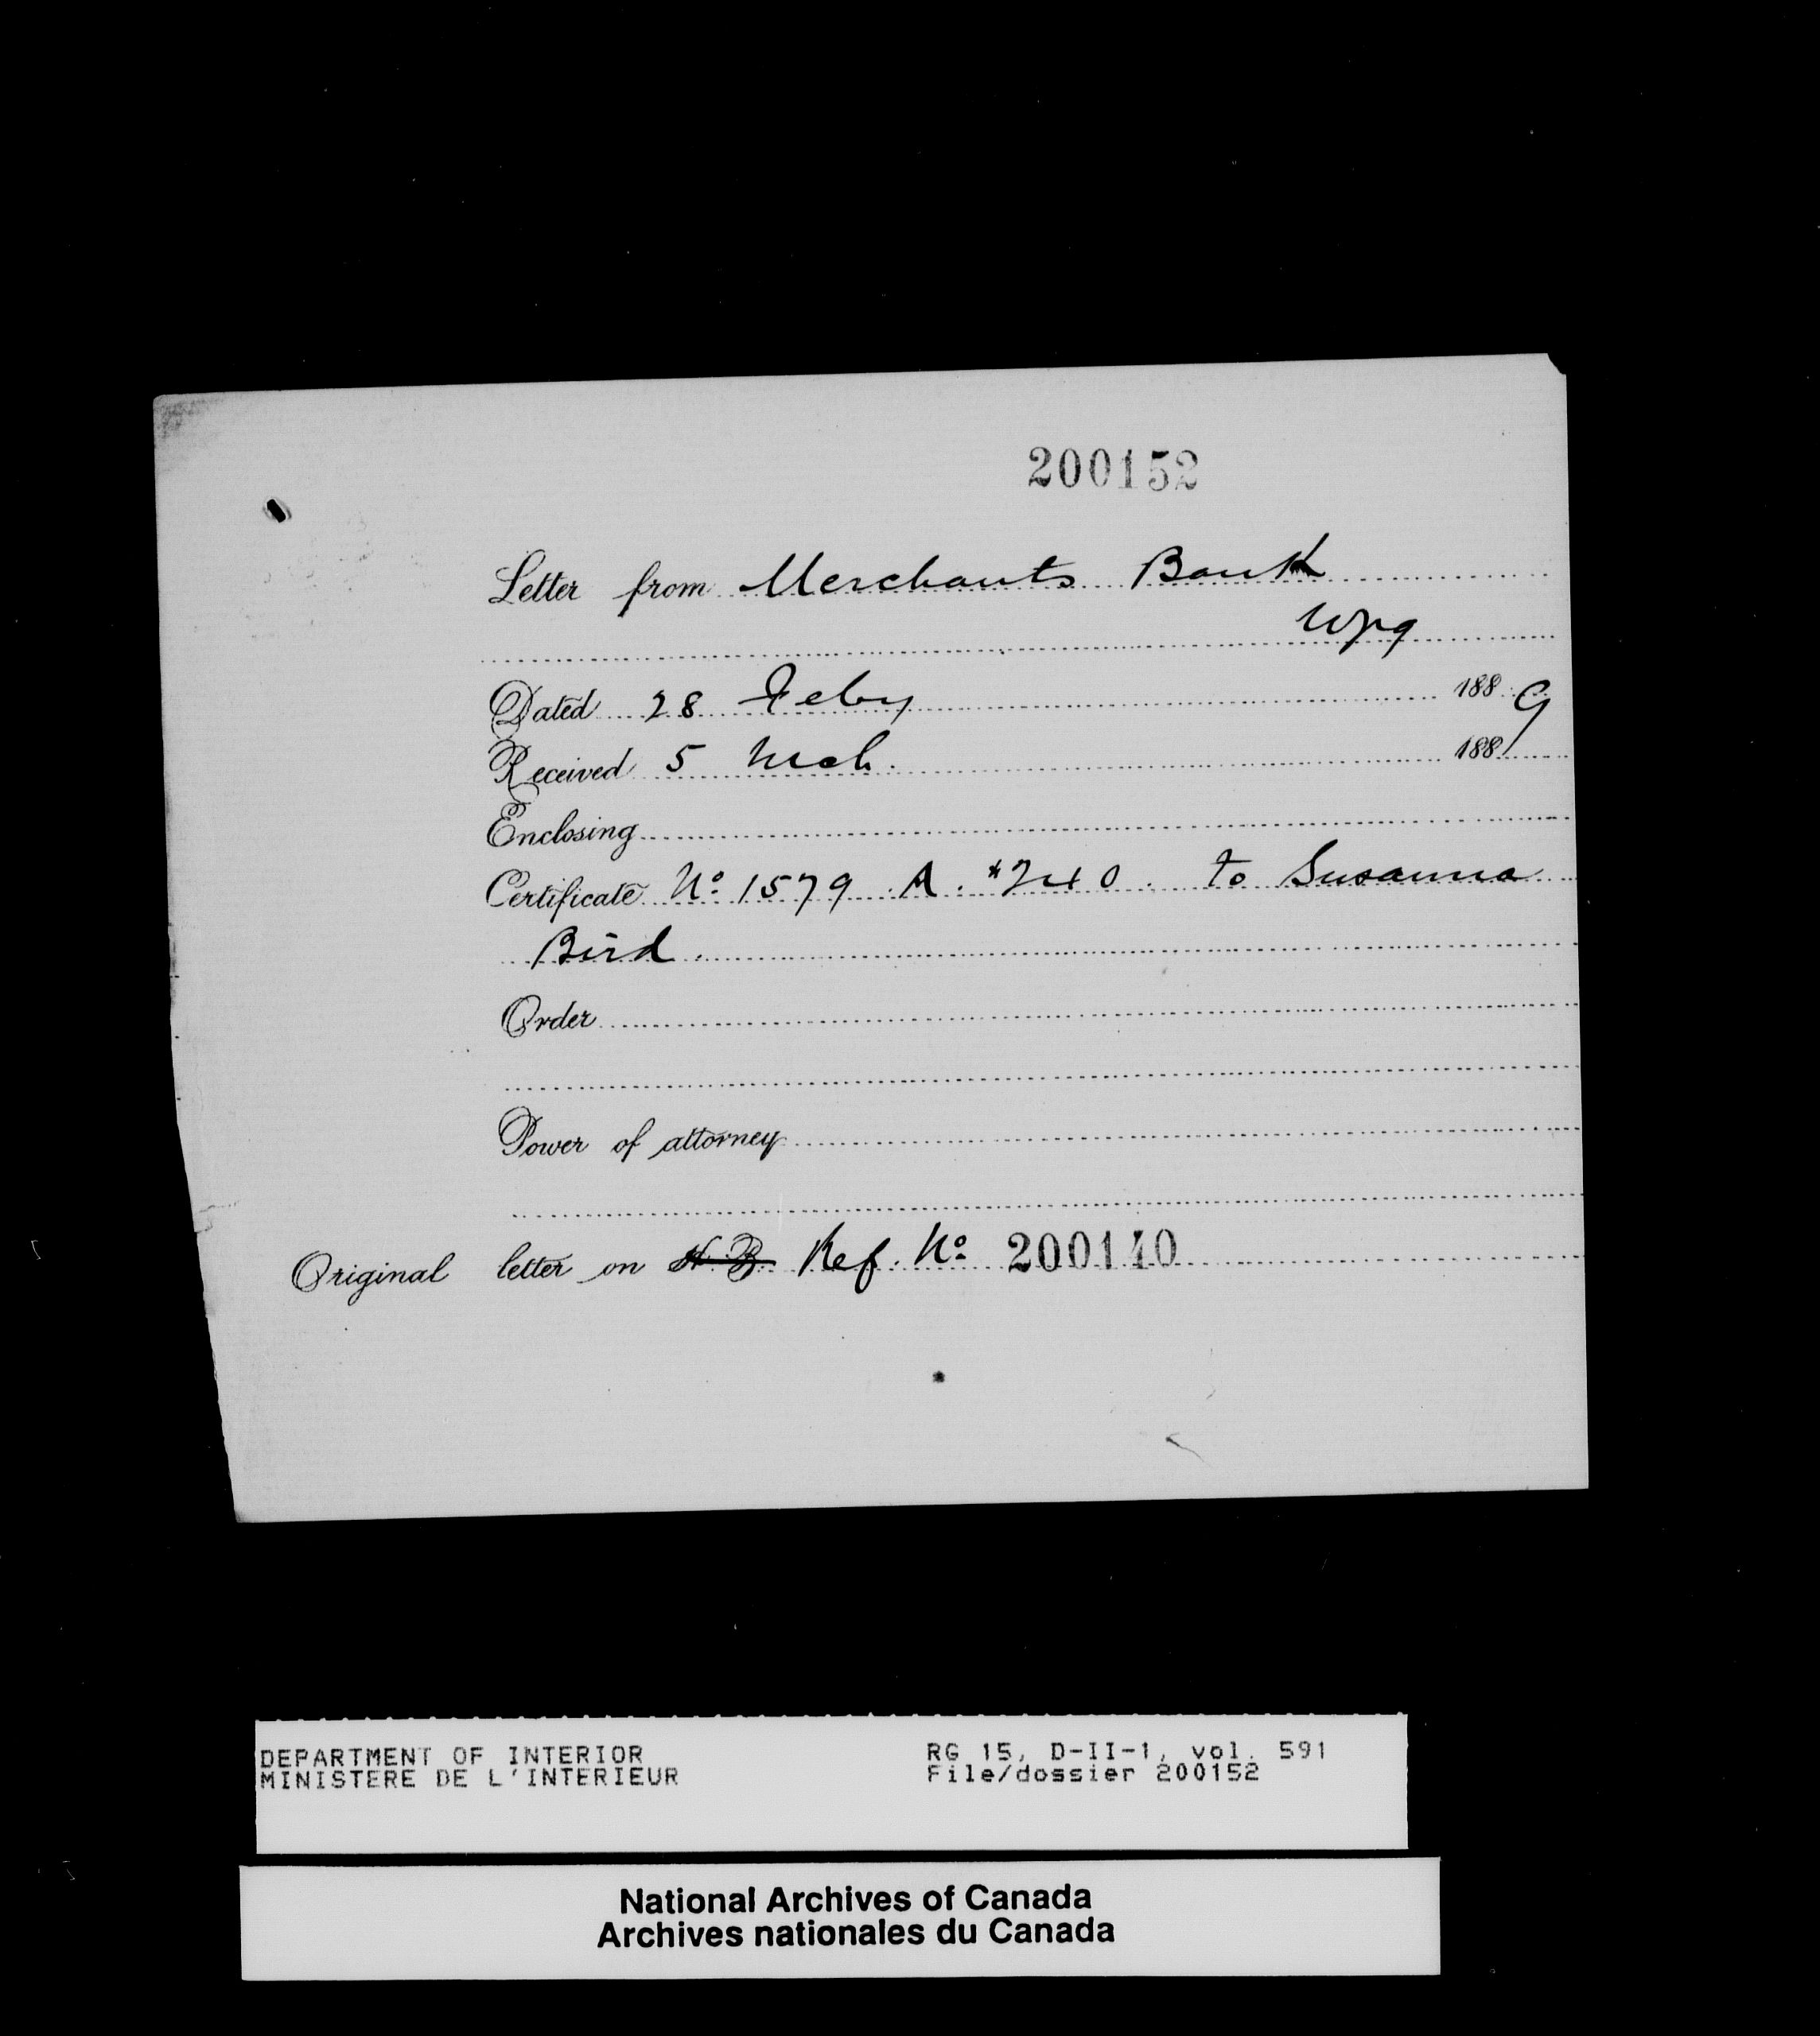 200152
Letter from Merchants Bank
Wpg
Dated 28 Feby 1889
Received 5 Mch. 188
Enclosing
Certificate No 1579 A. $240. to Susanna
Bird.
Order
Power of attorney
Original letter on H.B. Ref. No 200140
DEPARTMENT OF INTERIOR
MINISTERE DE L'INTERIEUR
RG 15, D-II-1, vol. 591
File/dossier 200152
National Archives of Canada
Archives nationales du Canada